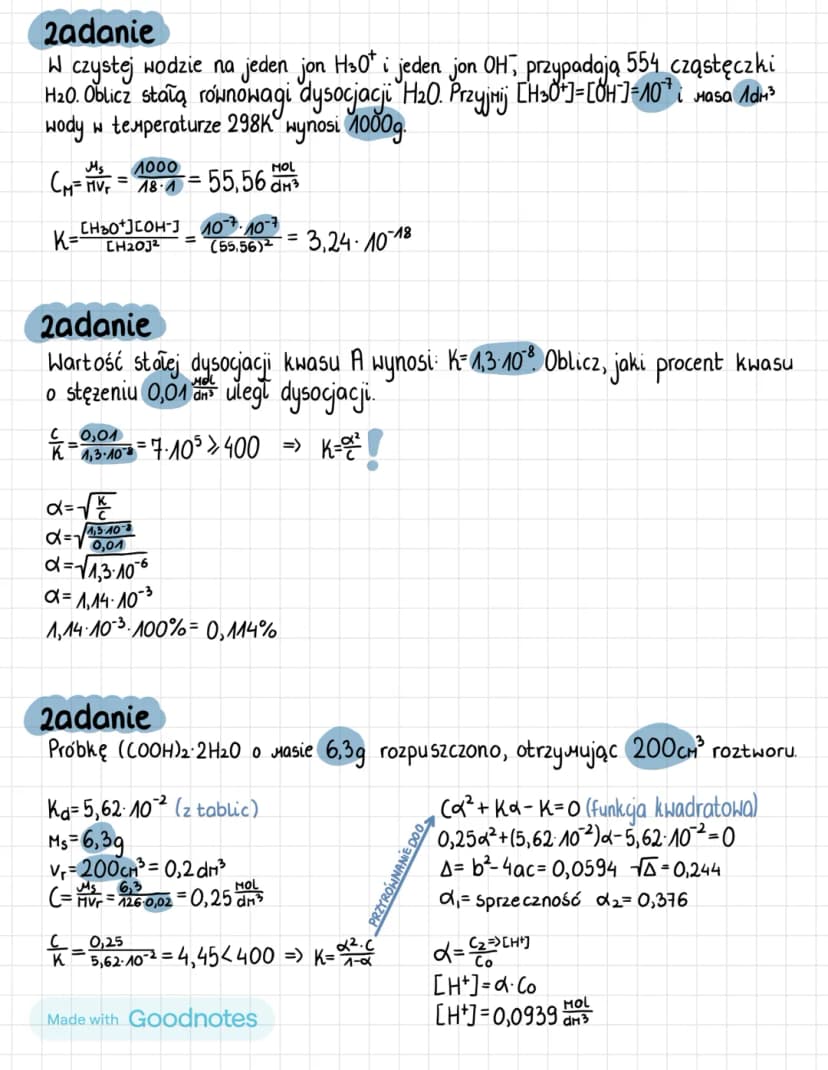 Zadanie
W czystej wodzie na jeden jon H₃O⁺ i jeden jon OH⁻, przypadają 554 cząsteczki
H₂O. Oblicz stałą równowagi dysocjacji H₂O. Przyjmij [H₃O⁺]=[OH⁻]=10⁻⁷ i masa 1dm³
wody w temperaturze 298K wynosi 1000g.
Cₘ = mₛ/MVᵣ = 1000/18·1 = 55,56 mol/dm³
K = [H₃O⁺][OH⁻]/[H₂O]² = 10⁻⁷·10⁻⁷/(55,56)² = 3,24·10⁻¹⁸
Zadanie
Wartość stałej dysocjacji kwasu A wynosi: K=1,3·10⁻⁸. Oblicz, jaki procent kwasu
o stężeniu 0,01 mol/dm³ uległ dysocjacji.
C/K = 0,01/1,3·10⁻⁸ = 7·10⁵ ⩾ 400 ⇒ K=α²/C !
α=√K/C
α=√1,3·10⁻⁸/0,01
α=√1,3·10⁻⁶
α=1,14·10⁻³
1,14·10⁻³·100% = 0,114%
Zadanie
Próbkę (COOH)₂·2H₂O o masie 6,3g rozpuszczono, otrzymując 200cm³ roztworu.
Kd=5,62·10⁻² (z tablic)
mₛ=6,3g
Vᵣ=200cm³=0,2dm³
C = mₛ/MVᵣ = 6,3/126·0,02 = 0,25 mol/dm³
C/K = 0,25/5,62·10⁻² = 4,45<400 ⇒ K=α²·C/1-α
PRZYRÓWNANIE DO 0
Cα²+Kα-K=0 (funkcja kwadratowa)
0,25α²+(5,62·10⁻²)α-5,62·10⁻²=0
Δ=b²-4ac=0,0594 √Δ=0,244
α₁=sprzeczność α₂=0,376
α=Cz⇒[H⁺]/C₀
[H⁺]=α·C₀
[H⁺]=0,0939 mol/dm³
Made with Goodnotes